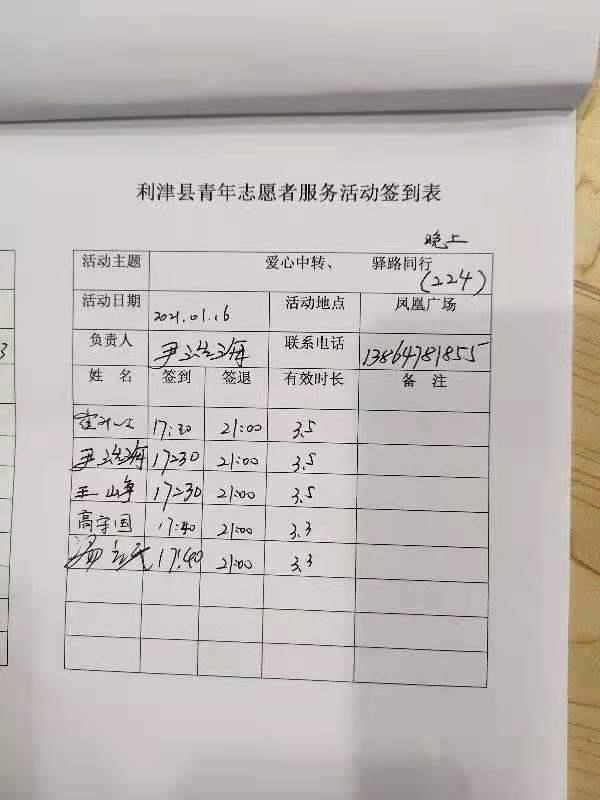 利津县青年志愿者服务活动签到表
晚上
活动主题 爱心中转、 驿路同行
(224)
活动日期 2021.01.16 活动地点 凤凰广场
负责人 尹浩海 联系电话 13864781855
姓 名 签到 签退 有效时长 备 注
17:30 21:00 3.5
尹浩海 1730 21:00 3.5
王山争 1730 21:00 3.5
高守国 17:40 21:00 3.3
17:40 21:00 3.3
3